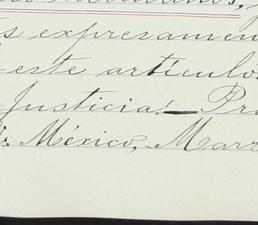 s expresamen
este artículo
Justicia!— Pr
México, Mar